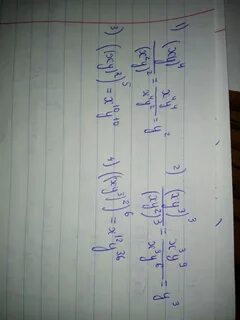 1) (xy)⁴/(x²y)² = x⁴y⁴/x⁴y² = y²
2) (xy³)³/(xy²)³ = x³y⁹/x³y⁶ = y³
3) ((xy)²)⁵ = x¹⁰y¹⁰
4) ((xy³)²)⁶ = x¹²y³⁶